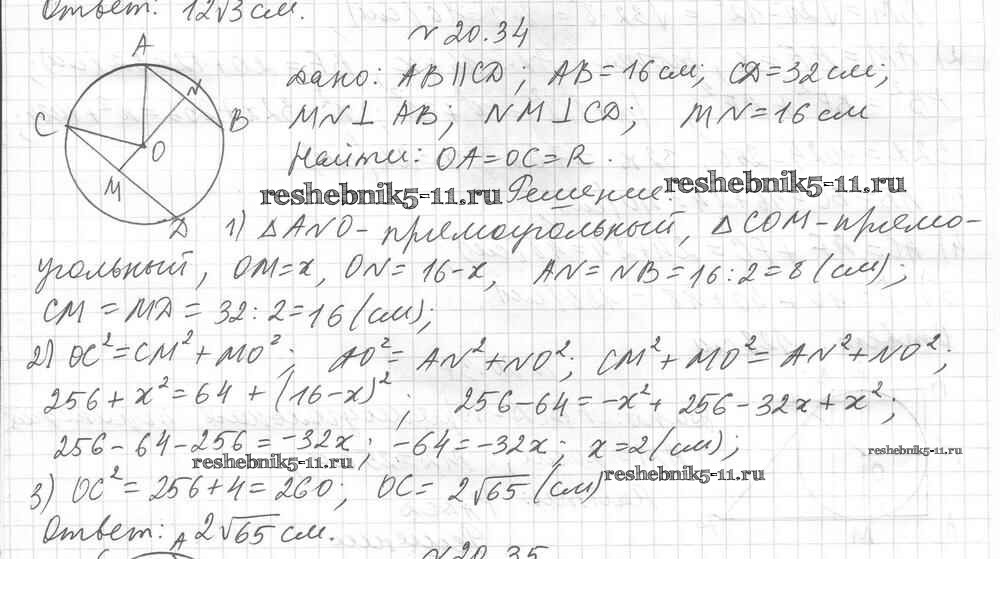 Ответ: 12√3 см.
№ 20.34
A
N
C
B
O
M
D
Дано: AB || CD; AB = 16 см; CD = 32 см;
MN ⊥ AB; NM ⊥ CD; MN = 16 см
Найти: OA = OC = R.
reshebnik5-11.ru Решение. reshebnik5-11.ru
1) △ANO - прямоугольный, △COM - прямо-
угольный, OM = x, ON = 16 - x, AN = NB = 16 : 2 = 8 (см);
CM = MD = 32 : 2 = 16 (см);
2) OC² = CM² + MO²; AO² = AN² + NO²; CM² + MO² = AN² + NO²;
256 + x² = 64 + (16 - x)²; 256 - 64 = -x² + 256 - 32x + x²;
256 - 64 - 256 = -32x; -64 = -32x; x = 2 (см);
reshebnik5-11.ru
reshebnik5-11.ru
3) OC² = 256 + 4 = 260; OC = 2√65 (см)
reshebnik5-11.ru
Ответ: 2√65 см.
A
№ 20.35